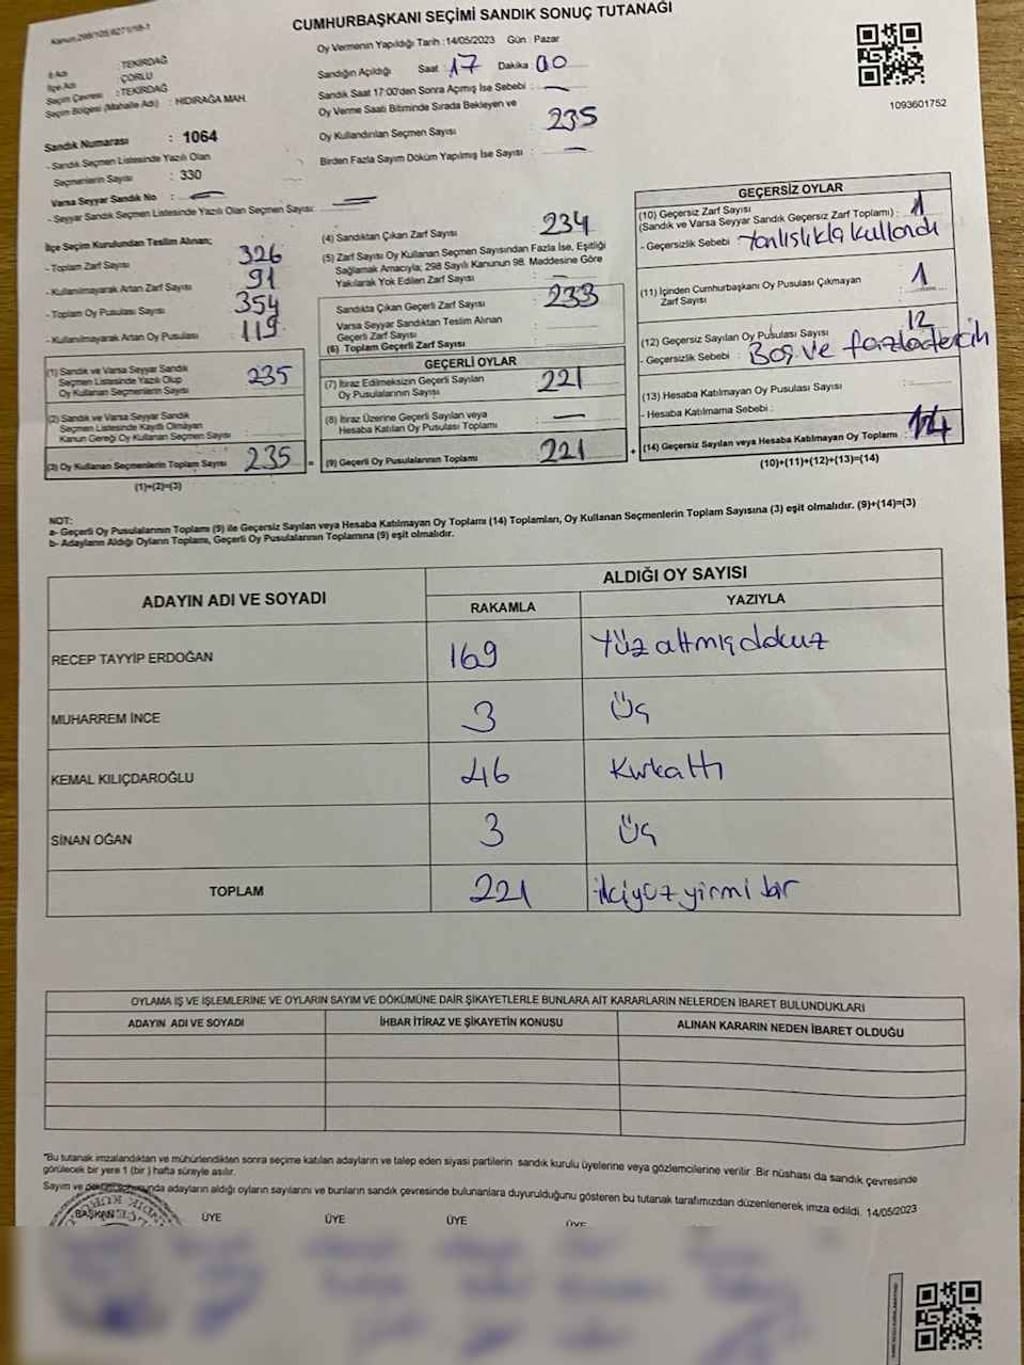 CUMHURBAŞKANI SEÇİMİ SANDIK SONUÇ TUTANAĞI
Oy Vermenin Yapıldığı Tarih : 14/05/2023 Gün : Pazar
İl Adı : TEKİRDAĞ
İlçe Adı : ÇORLU
Seçim Çevresi : TEKİRDAĞ
Seçim Bölgesi (Mahalle Adı) : HIDIRAĞA MAH.
Sandık Numarası : 1064
- Sandık Seçmen Listesinde Yazılı Olan
Seçmenlerin Sayısı : 330
Varsa Seyyar Sandık No : —
- Seyyar Sandık Seçmen Listesinde Yazılı Olan Seçmen Sayısı: —
Sandığın Açıldığı Saat : 17 Dakika : 00
Sandık Saat 17:00'den Sonra Açımış İse Sebebi : —
Oy Verme Saati Bitiminde Sırada Bekleyen ve
Oy Kullandırılan Seçmen Sayısı : 235
Birden Fazla Sayım Döküm Yapılmış İse Sayısı : —
1093601752
İlçe Seçim Kurulundan Teslim Alınan;
- Toplam Zarf Sayısı : 326
- Kullanılmayarak Artan Zarf Sayısı : 91
- Toplam Oy Pusulası Sayısı : 354
- Kullanılmayarak Artan Oy Pusulası : 119
(1) Sandık ve Varsa Seyyar Sandık
Seçmen Listesinde Yazılı Olup
Oy Kullanan Seçmenlerin Sayısı : 235
(2) Sandık ve Varsa Seyyar Sandık
Seçmen Listesinde Kayıtlı Olmayan
Kanun Gereği Oy Kullanan Seçmen Sayısı :
(3) Oy Kullanan Seçmenlerin Toplam Sayısı : 235 =
(1)+(2)=(3)
(4) Sandıktan Çıkan Zarf Sayısı : 234
(5) Zarf Sayısı Oy Kullanan Seçmen Sayısından Fazla İse, Eşitliği
Sağlamak Amacıyla; 298 Sayılı Kanunun 98. Maddesine Göre
Yakılarak Yok Edilen Zarf Sayısı : —
Sandıkta Çıkan Geçerli Zarf Sayısı : 233
Varsa Seyyar Sandıktan Teslim Alınan
Geçerli Zarf Sayısı :
(6) Toplam Geçerli Zarf Sayısı
GEÇERLİ OYLAR
(7) İtiraz Edilmeksizin Geçerli Sayılan
Oy Pusulalarının Sayısı : 221
(8) İtiraz Üzerine Geçerli Sayılan veya
Hesaba Katılan Oy Pusulası Toplamı : —
(9) Geçerli Oy Pusulalarının Toplamı : 221 +
GEÇERSİZ OYLAR
(10) Geçersiz Zarf Sayısı
(Sandık ve Varsa Seyyar Sandık Geçersiz Zarf Toplamı) : 1
- Geçersizlik Sebebi : Yanlışlıkla kullandı
(11) İçinden Cumhurbaşkanı Oy Pusulası Çıkmayan
Zarf Sayısı : 1
(12) Geçersiz Sayılan Oy Pusulası Sayısı : 12
- Geçersizlik Sebebi : Boş ve fazla tercih
(13) Hesaba Katılmayan Oy Pusulası Sayısı :
- Hesaba Katılmama Sebebi :
(14) Geçersiz Sayılan veya Hesaba Katılmayan Oy Toplamı : 14
(10)+(11)+(12)+(13)=(14)
NOT:
a- Geçerli Oy Pusulalarının Toplamı (9) ile Geçersiz Sayılan veya Hesaba Katılmayan Oy Toplamı (14) Toplamları, Oy Kullanan Seçmenlerin Toplam Sayısına (3) eşit olmalıdır. (9)+(14)=(3)
b- Adayların Aldığı Oyların Toplamı, Geçerli Oy Pusulalarının Toplamına (9) eşit olmalıdır.
ADAYIN ADI VE SOYADI ALDIĞI OY SAYISI
RAKAMLA YAZIYLA
RECEP TAYYİP ERDOĞAN 169 Yüz altmış dokuz
MUHARREM İNCE 3 Üç
KEMAL KILIÇDAROĞLU 46 Kırkaltı
SİNAN OĞAN 3 Üç
TOPLAM 221 ikiyüz yirmi bir
OYLAMA İŞ VE İŞLEMLERİNE VE OYLARIN SAYIM VE DÖKÜMÜNE DAİR ŞİKAYETLERLE BUNLARA AİT KARARLARIN NELERDEN İBARET BULUNDUKLARI
ADAYIN ADI VE SOYADI İHBAR İTİRAZ VE ŞİKAYETİN KONUSU ALINAN KARARIN NEDEN İBARET OLDUĞU
*Bu tutanak imzalandıktan ve mühürlendikten sonra seçime katılan adayların ve talep eden siyasi partilerin sandık kurulu üyelerine veya gözlemcilerine verilir. Bir nüshası da sandık çevresinde
görülecek bir yere 1 (bir ) hafta süreyle asılır.
Sayım ve dökümü sonunda adayların aldığı oyların sayılarını ve bunların sandık çevresinde bulunanlara duyurulduğunu gösteren bu tutanak tarafımızdan düzenlenerek imza edildi. 14/05/2023
BAŞKAN ÜYE ÜYE ÜYE ÜYE